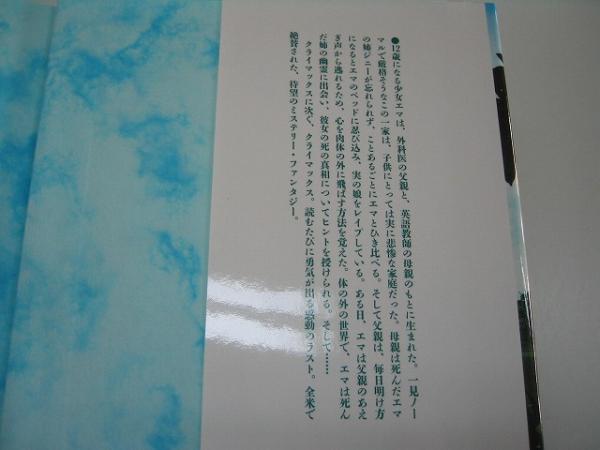 ●12歳になる少女エマは、外科医の父親と、英語教師の母親のもとに生まれた。一見ノー
マルで厳格そうなこの一家は、子供にとっては実に悲惨な家庭だった。母親は死んだエマ
の姉ジニーが忘れられず、ことあるごとにエマとひき比べる。そして父親は、毎日明け方
になるとエマのベッドに忍び込み、実の娘をレイプしている。ある日、エマは父親のあえ
ぎ声から逃れるため、心を肉体の外に飛ばす方法を覚えた。体の外の世界で、エマは死ん
だ姉の幽霊に出会い、彼女の死の真相についてヒントを授けられる。そして……
クライマックスに次ぐ、クライマックス。読むたびに勇気が出る感動のラスト。全米で
絶賛された、待望のミステリー・ファンタジー。